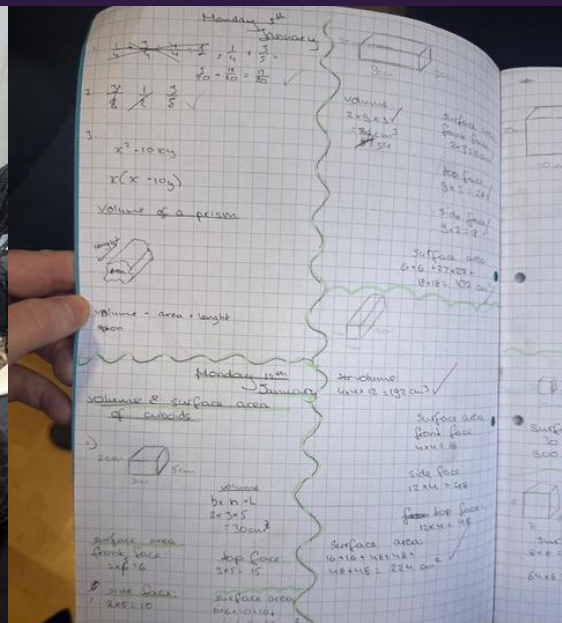 Monday 5th
January
1.
1/4 + 3/5 =
5/20 + 12/20 = 17/20
2. 1/2 3/5
3.
x² - 10xy
x(x - 10y)
Volume of a prism
lenght
area
volume = area × lenght
Monday 12th
January
volume & surface area
of cuboids
1)
2cm
3cm
5cm
volume
b × h × L
2×3×5
=30cm³
surface area
front face:
2×3=6
top face:
3×5=15
side face:
2×5=10
surface area
6+6+10+10+
9cm
volume
2×9×3
54
surface area
front face
2×3=6
top face
9×3=27
side face
9×2=18
surface area
6+6+27+27+
18+18= 102 cm²
volume
4×4×12=192cm³
surface area
front face
4×4=16
side face
12×4=48
top face
12×4=48
surface area:
16+16+48+48+
48+48= 224 cm²